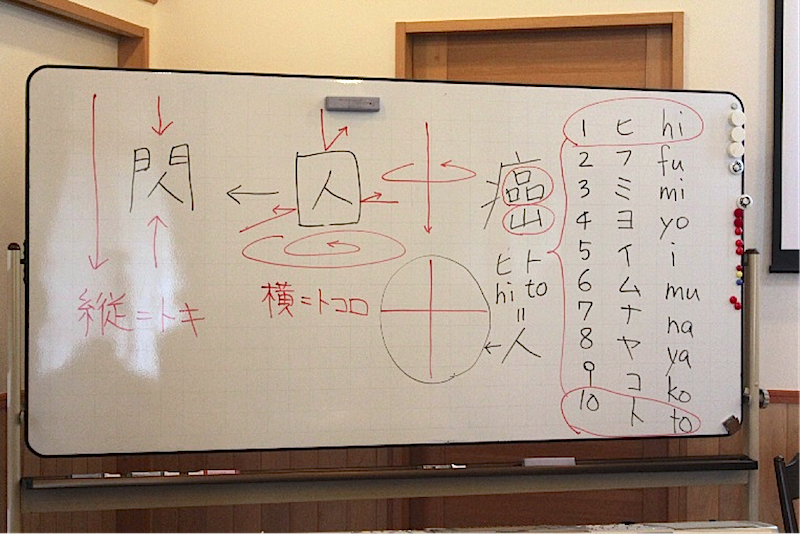 閃
人
癌
縦=トキ
横=トコロ
ヒト
hi to
=
人
1 ヒ hi
2 フ fu
3 ミ mi
4 ヨ yo
5 イ i
6 ム mu
7 ナ na
8 ヤ ya
9 コ ko
10 ト to